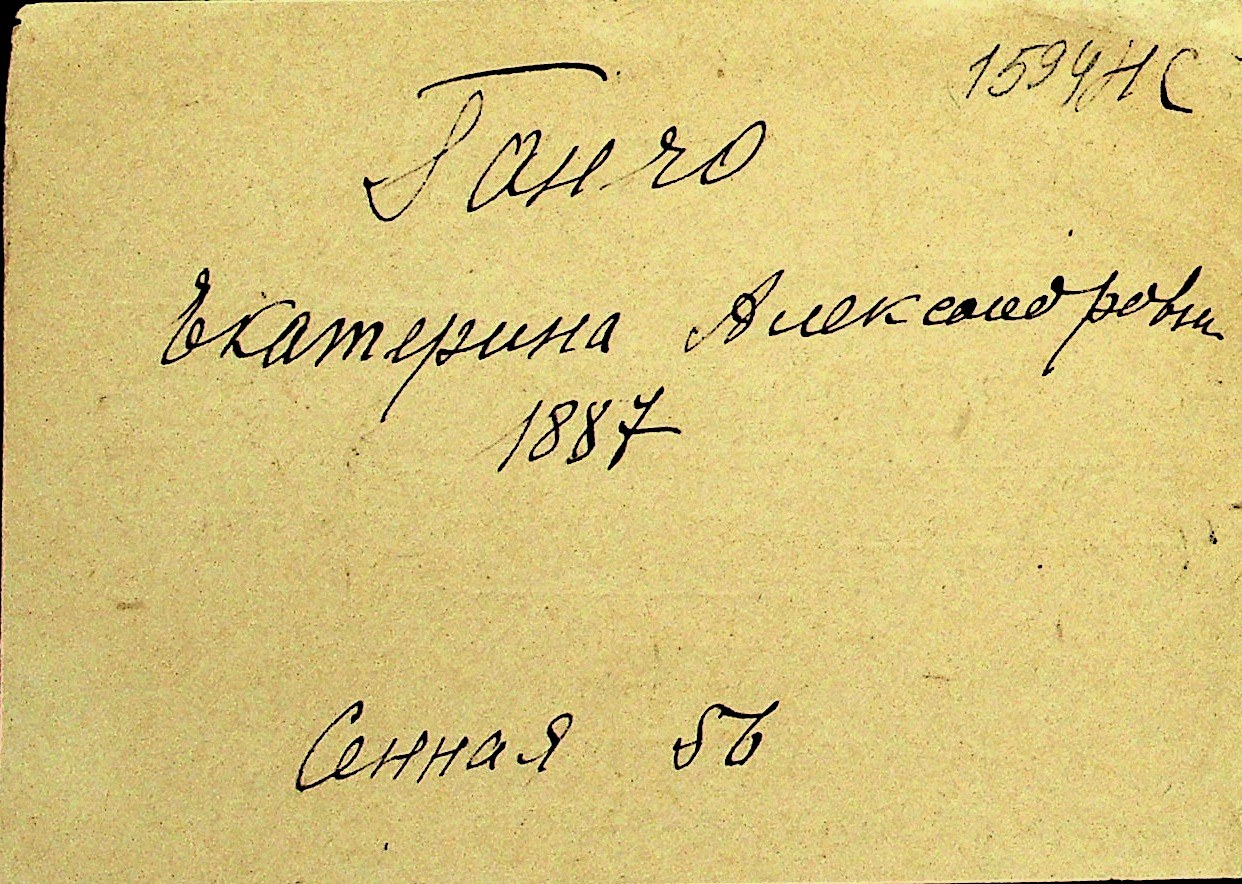 1594 НС
Ганчо
Екатерина Александровн
1887
Сенная 56